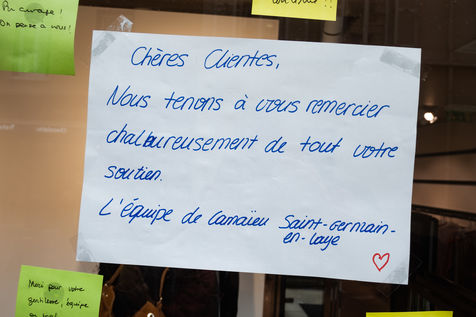 Bon courage !
On pense à vous !
Chères Clientes,
Nous tenons à vous remercier
chaleureusement de tout votre
soutien.
L'équipe de Camaïeu Saint-Germain-
en-Laye
Merci pour votre
gentillesse, équipe